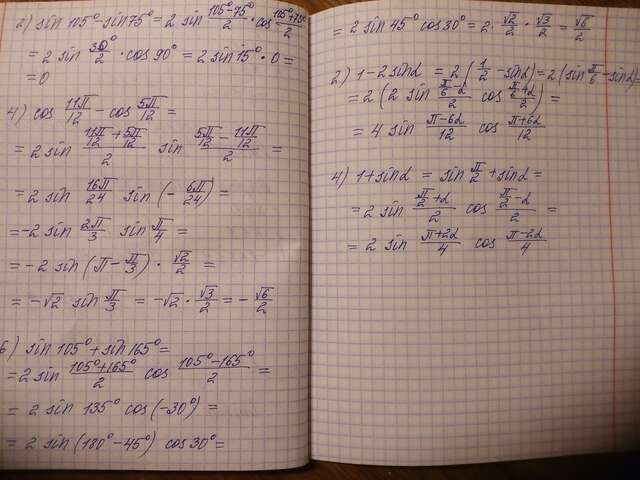 2) sin 105° - sin 75° = 2 sin (105°-75°)/2 · cos (105°+75°)/2
= 2 sin 30°/2 · cos 90° = 2 sin 15° · 0 =
= 0
4) cos 11π/12 - cos 5π/12 =
= 2 sin (11π/12 + 5π/12)/2 sin (5π/12 - 11π/12)/2 =
= 2 sin 16π/24 sin (- 6π/24) =
= -2 sin 2π/3 sin π/4 =
= -2 sin (π - π/3) · √2/2 =
= -√2 sin π/3 = -√2 · √3/2 = - √6/2
6) sin 105° + sin 165° =
= 2 sin (105°+165°)/2 cos (105°-165°)/2 =
= 2 sin 135° cos (-30°) =
= 2 sin (180° - 45°) cos 30° =
= 2 sin 45° cos 30° = 2 · √2/2 · √3/2 = √6/2
2) 1 - 2 sin α = 2 (1/2 - sin α) = 2 (sin π/6 - sin α) =
= 2 (2 sin (π/6 - α)/2 cos (π/6 + α)/2) =
= 4 sin (π-6α)/12 cos (π+6α)/12
4) 1 + sin α = sin π/2 + sin α =
= 2 sin (π/2 + α)/2 cos (π/2 - α)/2 =
= 2 sin (π+2α)/4 cos (π-2α)/4